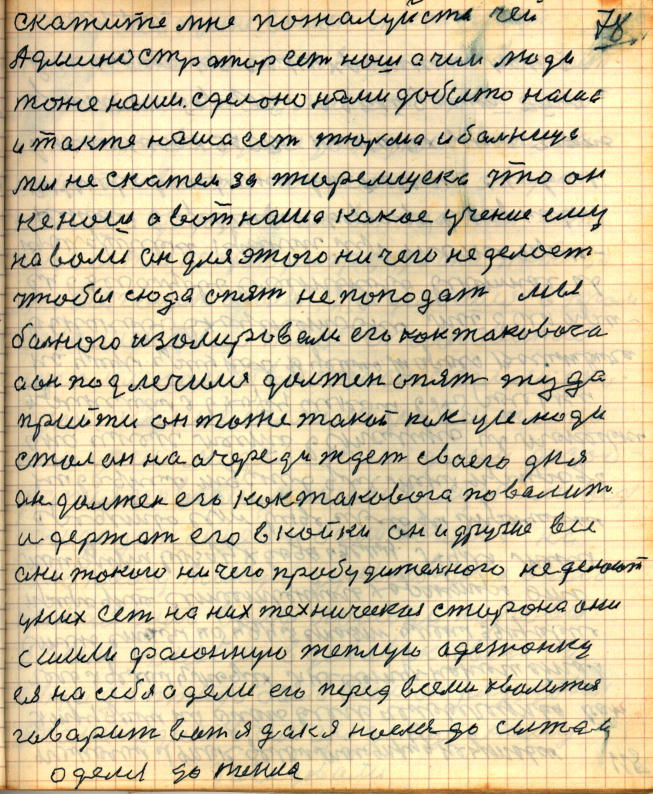 скажите мне пожалуйста чей 78
Администратор сет наш а чии люди
тоже наши. сделоно нами добыто нами
и также наша сет тюрма и балница
мы не скажем за тюремщека что он
не наш а вот наша какое учение ему
на воли он для этого ни чего не делоет
чтобы сюда опят не поподат мы
балного изолировали его как таковога
а он подлечился должен опят туда
прийти он тоже такой как уи люди
стал он на очереди ждет своего дня
он должен его как таковога повалит
и держат его в койки он и другие все
они такого ничего пробудителного не делоют
у них сет на них техническая сторона они
сшили фасонную теплую адежонку
ея на себя одели его перед всеми хвалится
говарит вот я дак я ноелся до сыта и
оделся до тепла